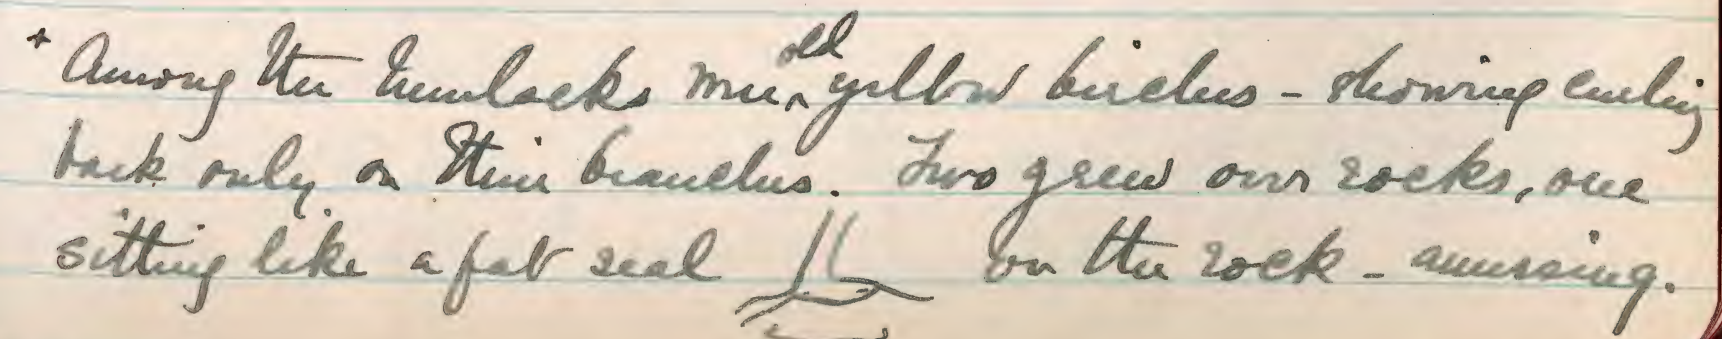 + Among the hemlocks were ^old yellow birches - showing curling
bark only on their branches. Two grew over rocks, one
sitting like a fat seal on the rock - amusing.